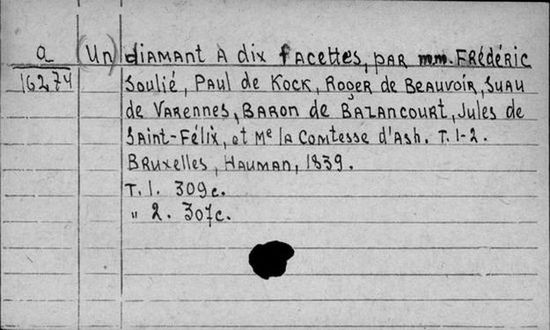 a (Un) diamant à dix facettes, par mm. Frédéric
16274 Soulié, Paul de Kock, Roger de Beauvoir, Suau
de Varennes, Baron de Bazancourt, Jules de
Saint-Félix, et Me la Comtesse d'Ash. T. 1-2.
Bruxelles, Hauman, 1839.
T. 1. 309 c.
" 2. 307 c.